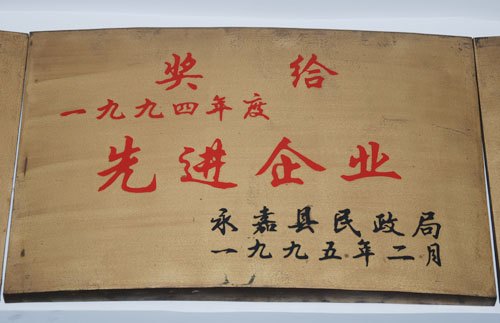 奖给
一九九四年度
先进企业
永嘉县民政局
一九九五年二月